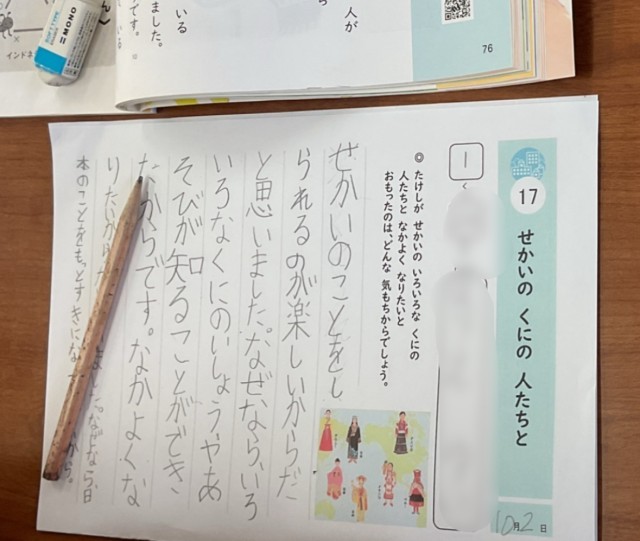 人が
いる
ました。
です。
76
MONO
17 せかいの くにの 人たちと
10月2日
1
く
◎ たけしが せかいの いろいろな くにの
人たちと なかよく なりたいと
おもったのは、どんな 気もちからでしょう。
せかいのことをし
られるのが楽しいからだ
と思いました。なぜなら、いろ
いろなくにのいしょうやあ
そびが知ることができ
なからです。なかよくな
りたいから
本のことをもっとすきになっ
なぜなら、日
から。